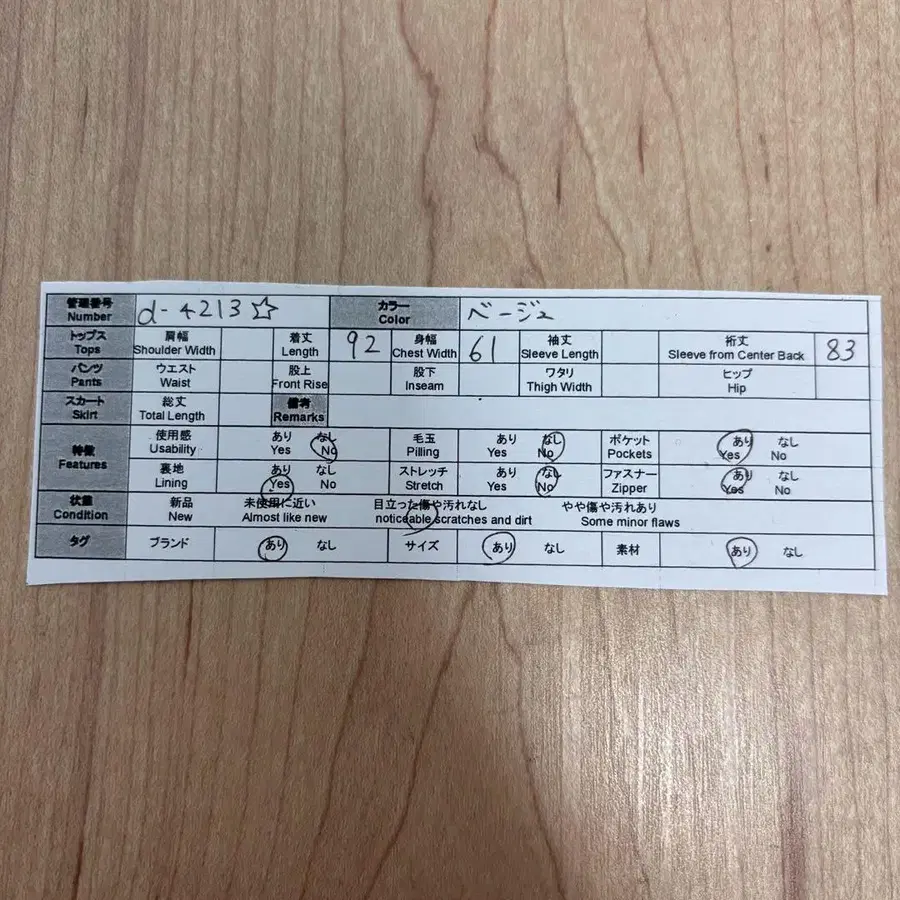 管理番号 d-4213☆ カラー ベージュ
Number Color
トップス 肩幅 着丈 92 身幅 61 袖丈 裄丈 83
Tops Shoulder Width Length Chest Width Sleeve Length Sleeve from Center Back
パンツ ウエスト 股上 股下 ワタリ ヒップ
Pants Waist Front Rise Inseam Thigh Width Hip
スカート 総丈 備考
Skirt Total Length Remarks
特徴 使用感 あり なし 毛玉 あり なし ポケット あり なし
Features Usability Yes No Pilling Yes No Pockets Yes No
裏地 あり なし ストレッチ あり なし ファスナー あり なし
Lining Yes No Stretch Yes No Zipper Yes No
状態 新品 未使用に近い 目立った傷や汚れなし やや傷や汚れあり
Condition New Almost like new noticeable scratches and dirt Some minor flaws
タグ ブランド あり なし サイズ あり なし 素材 あり なし